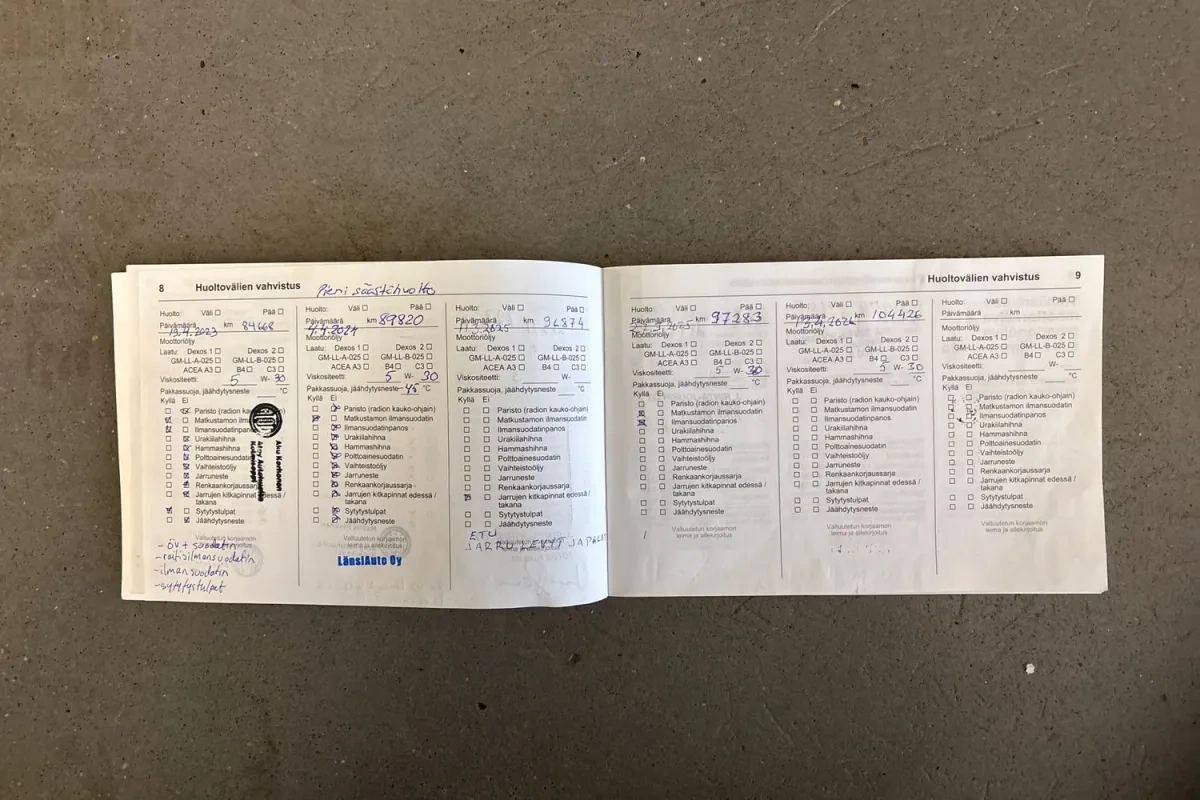 8 Huoltovälien vahvistus Pieni säästöhuolto
Huolto: Väli ☐ Pää ☐
Päivämäärä 13.4.2023 km 84668
Moottoriöljy
Laatu: Dexos 1 ☐ Dexos 2 ☐
GM-LL-A-025 ☐ GM-LL-B-025 ☐
ACEA A3 ☐ B4 ☐ C3 ☐
Viskositeetti: 5 W- 30
Pakkassuoja, jäähdytysneste °C
Kyllä Ei
Paristo (radion kauko-ohjain)
Matkustamon
Ilmansuodatinpanos
Urakiilahihna
Hammashihna
Polttoainesuodatin
Vaihteistoöljy
Jarruneste
Renkaankorjaussarja
Jarrujen kitkapinnat edessä /
takana
Sytytystulpat
Jäähdytysneste
Valtuutetun korjaamon
leima ja allekirjoitus
Aku Korhonen
- öv + suodatin
- raitisilmansuodatin
- ilmansuodatin
- sytytystulpat
Huolto: Väli ☐ Pää ☐
Päivämäärä 4.4.2024 km 89820
Moottoriöljy
Laatu: Dexos 1 ☐ Dexos 2 ☐
GM-LL-A-025 ☐ GM-LL-B-025 ☐
ACEA A3 ☐ B4 ☐ C3 ☐
Viskositeetti: 5 W- 30
Pakkassuoja, jäähdytysneste -45 °C
Kyllä Ei
Paristo (radion kauko-ohjain)
Matkustamon ilmansuodatin
Ilmansuodatinpanos
Urakiilahihna
Hammashihna
Polttoainesuodatin
Vaihteistoöljy
Jarruneste
Renkaankorjaussarja
Jarrujen kitkapinnat edessä /
takana
Sytytystulpat
Jäähdytysneste
Valtuutetun korjaamon
leima ja allekirjoitus
LänsiAuto Oy
Huolto: Väli ☐ Pää ☐
Päivämäärä 2025 km 96874
Moottoriöljy
Laatu: Dexos 1 ☐ Dexos 2 ☐
GM-LL-A-025 ☐ GM-LL-B-025 ☐
ACEA A3 ☐ B4 ☐ C3 ☐
Viskositeetti: W-
Pakkassuoja, jäähdytysneste °C
Kyllä Ei
Paristo (radion kauko-ohjain)
Matkustamon ilmansuodatin
Ilmansuodatinpanos
Urakiilahihna
Hammashihna
Polttoainesuodatin
Vaihteistoöljy
Jarruneste
Renkaankorjaussarja
Jarrujen kitkapinnat edessä /
takana
Sytytystulpat
Jäähdytysneste
Valtuutetun korjaamon
leima ja allekirjoitus
ETU
JARRULEVYT JA
Huoltovälien vahvistus 9
Huolto: Väli ☐ Pää ☐
Päivämäärä km 97283
Moottoriöljy
Laatu: Dexos 1 ☐ Dexos 2 ☐
GM-LL-A-025 ☐ GM-LL-B-025 ☐
ACEA A3 ☐ B4 ☐ C3 ☐
Viskositeetti: 5 W- 30
Pakkassuoja, jäähdytysneste °C
Kyllä Ei
Paristo (radion kauko-ohjain)
Matkustamon ilmansuodatin
Ilmansuodatinpanos
Urakiilahihna
Hammashihna
Polttoainesuodatin
Vaihteistoöljy
Jarruneste
Renkaankorjaussarja
Jarrujen kitkapinnat edessä /
takana
Sytytystulpat
Jäähdytysneste
Valtuutetun korjaamon
leima ja allekirjoitus
Huolto: Väli ☐ Pää ☐
Päivämäärä km 104426
Moottoriöljy
Laatu: Dexos 1 ☐ Dexos 2 ☐
GM-LL-A-025 ☐ GM-LL-B-025 ☐
ACEA A3 ☐ B4 ☐ C3 ☐
Viskositeetti: 5 W- 30
Pakkassuoja, jäähdytysneste °C
Kyllä Ei
Paristo (radion kauko-ohjain)
Matkustamon ilmansuodatin
Ilmansuodatinpanos
Urakiilahihna
Hammashihna
Polttoainesuodatin
Vaihteistoöljy
Jarruneste
Renkaankorjaussarja
Jarrujen kitkapinnat edessä /
takana
Sytytystulpat
Jäähdytysneste
Valtuutetun korjaamon
leima ja allekirjoitus
Huolto: Väli ☐ Pää ☐
Päivämäärä km
Moottoriöljy
Laatu: Dexos 1 ☐ Dexos 2 ☐
GM-LL-A-025 ☐ GM-LL-B-025 ☐
ACEA A3 ☐ B4 ☐ C3 ☐
Viskositeetti: W-
Pakkassuoja, jäähdytysneste °C
Kyllä Ei
Paristo (radion kauko-ohjain)
Matkustamon ilmansuodatin
Ilmansuodatinpanos
Urakiilahihna
Hammashihna
Polttoainesuodatin
Vaihteistoöljy
Jarruneste
Renkaankorjaussarja
Jarrujen kitkapinnat edessä /
takana
Sytytystulpat
Jäähdytysneste
Valtuutetun korjaamon
leima ja allekirjoitus